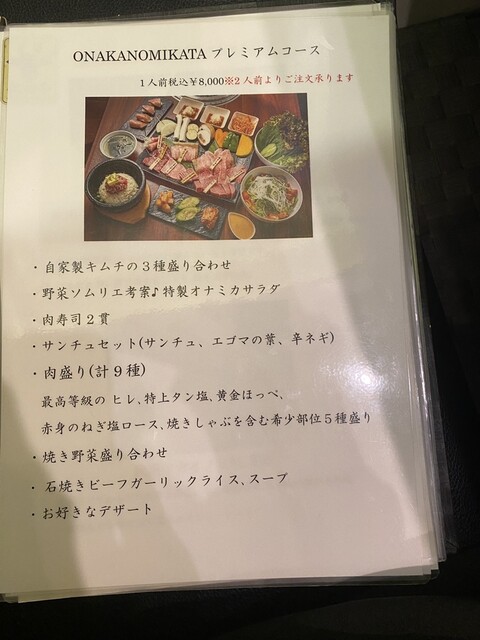 ONAKANOMIKATA プレミアムコース
1人前税込¥8,000※2人前よりご注文承ります
・自家製キムチの3種盛り合わせ
・野菜ソムリエ考案♪特製オナミカサラダ
・肉寿司2貫
・サンチュセット(サンチュ、エゴマの葉、辛ネギ)
・肉盛り(計9種)
最高等級の ヒレ、特上タン塩、黄金ほっぺ、
赤身のねぎ塩ロース、焼きしゃぶを含む希少部位5種盛り
・焼き野菜盛り合わせ
・石焼きビーフガーリックライス、スープ
・お好きなデザート